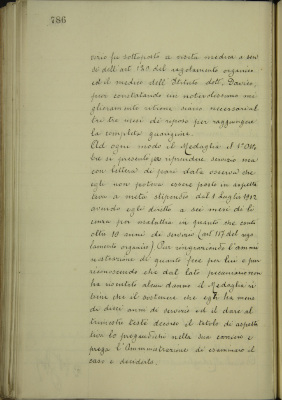 786
verio fu sottoposto a visita medica a sen
si dell'art. 130 del regolamento organico
ed il medico dell'Istituto dott. Davico,
pur constatando un notevolissimo mi
glioramento ritenne siano necessari al
tri tre mesi di riposo per raggiungere
la completa guarigione.
Ad ogni modo il Medaglia il 1° Otto
bre si presentò per riprendere servizio ma
con lettera di pari data osservò che
egli non poteva essere posto in aspetta
tiva a metà stipendio dal 1 luglio 1912
avendo egli diritto a sei mesi di li
cenza per malattia in quanto che conta
oltre 10 anni di servizio (art. 117 del rego
lamento organico). Pur ringraziando l'ammi
nistrazione di quanto fece per lui e pur
riconoscendo che dal lato pecuniario non
ha risentito alcun danno il Medaglia ri
tiene che il sostenere che egli ha meno
di dieci anni di servizio ed il dare al
trimestre testè decorso il titolo di aspetta
tiva lo pregiudichi nella sua carriera e
prega l'Amministrazione di esaminare il
caso e deciderlo.